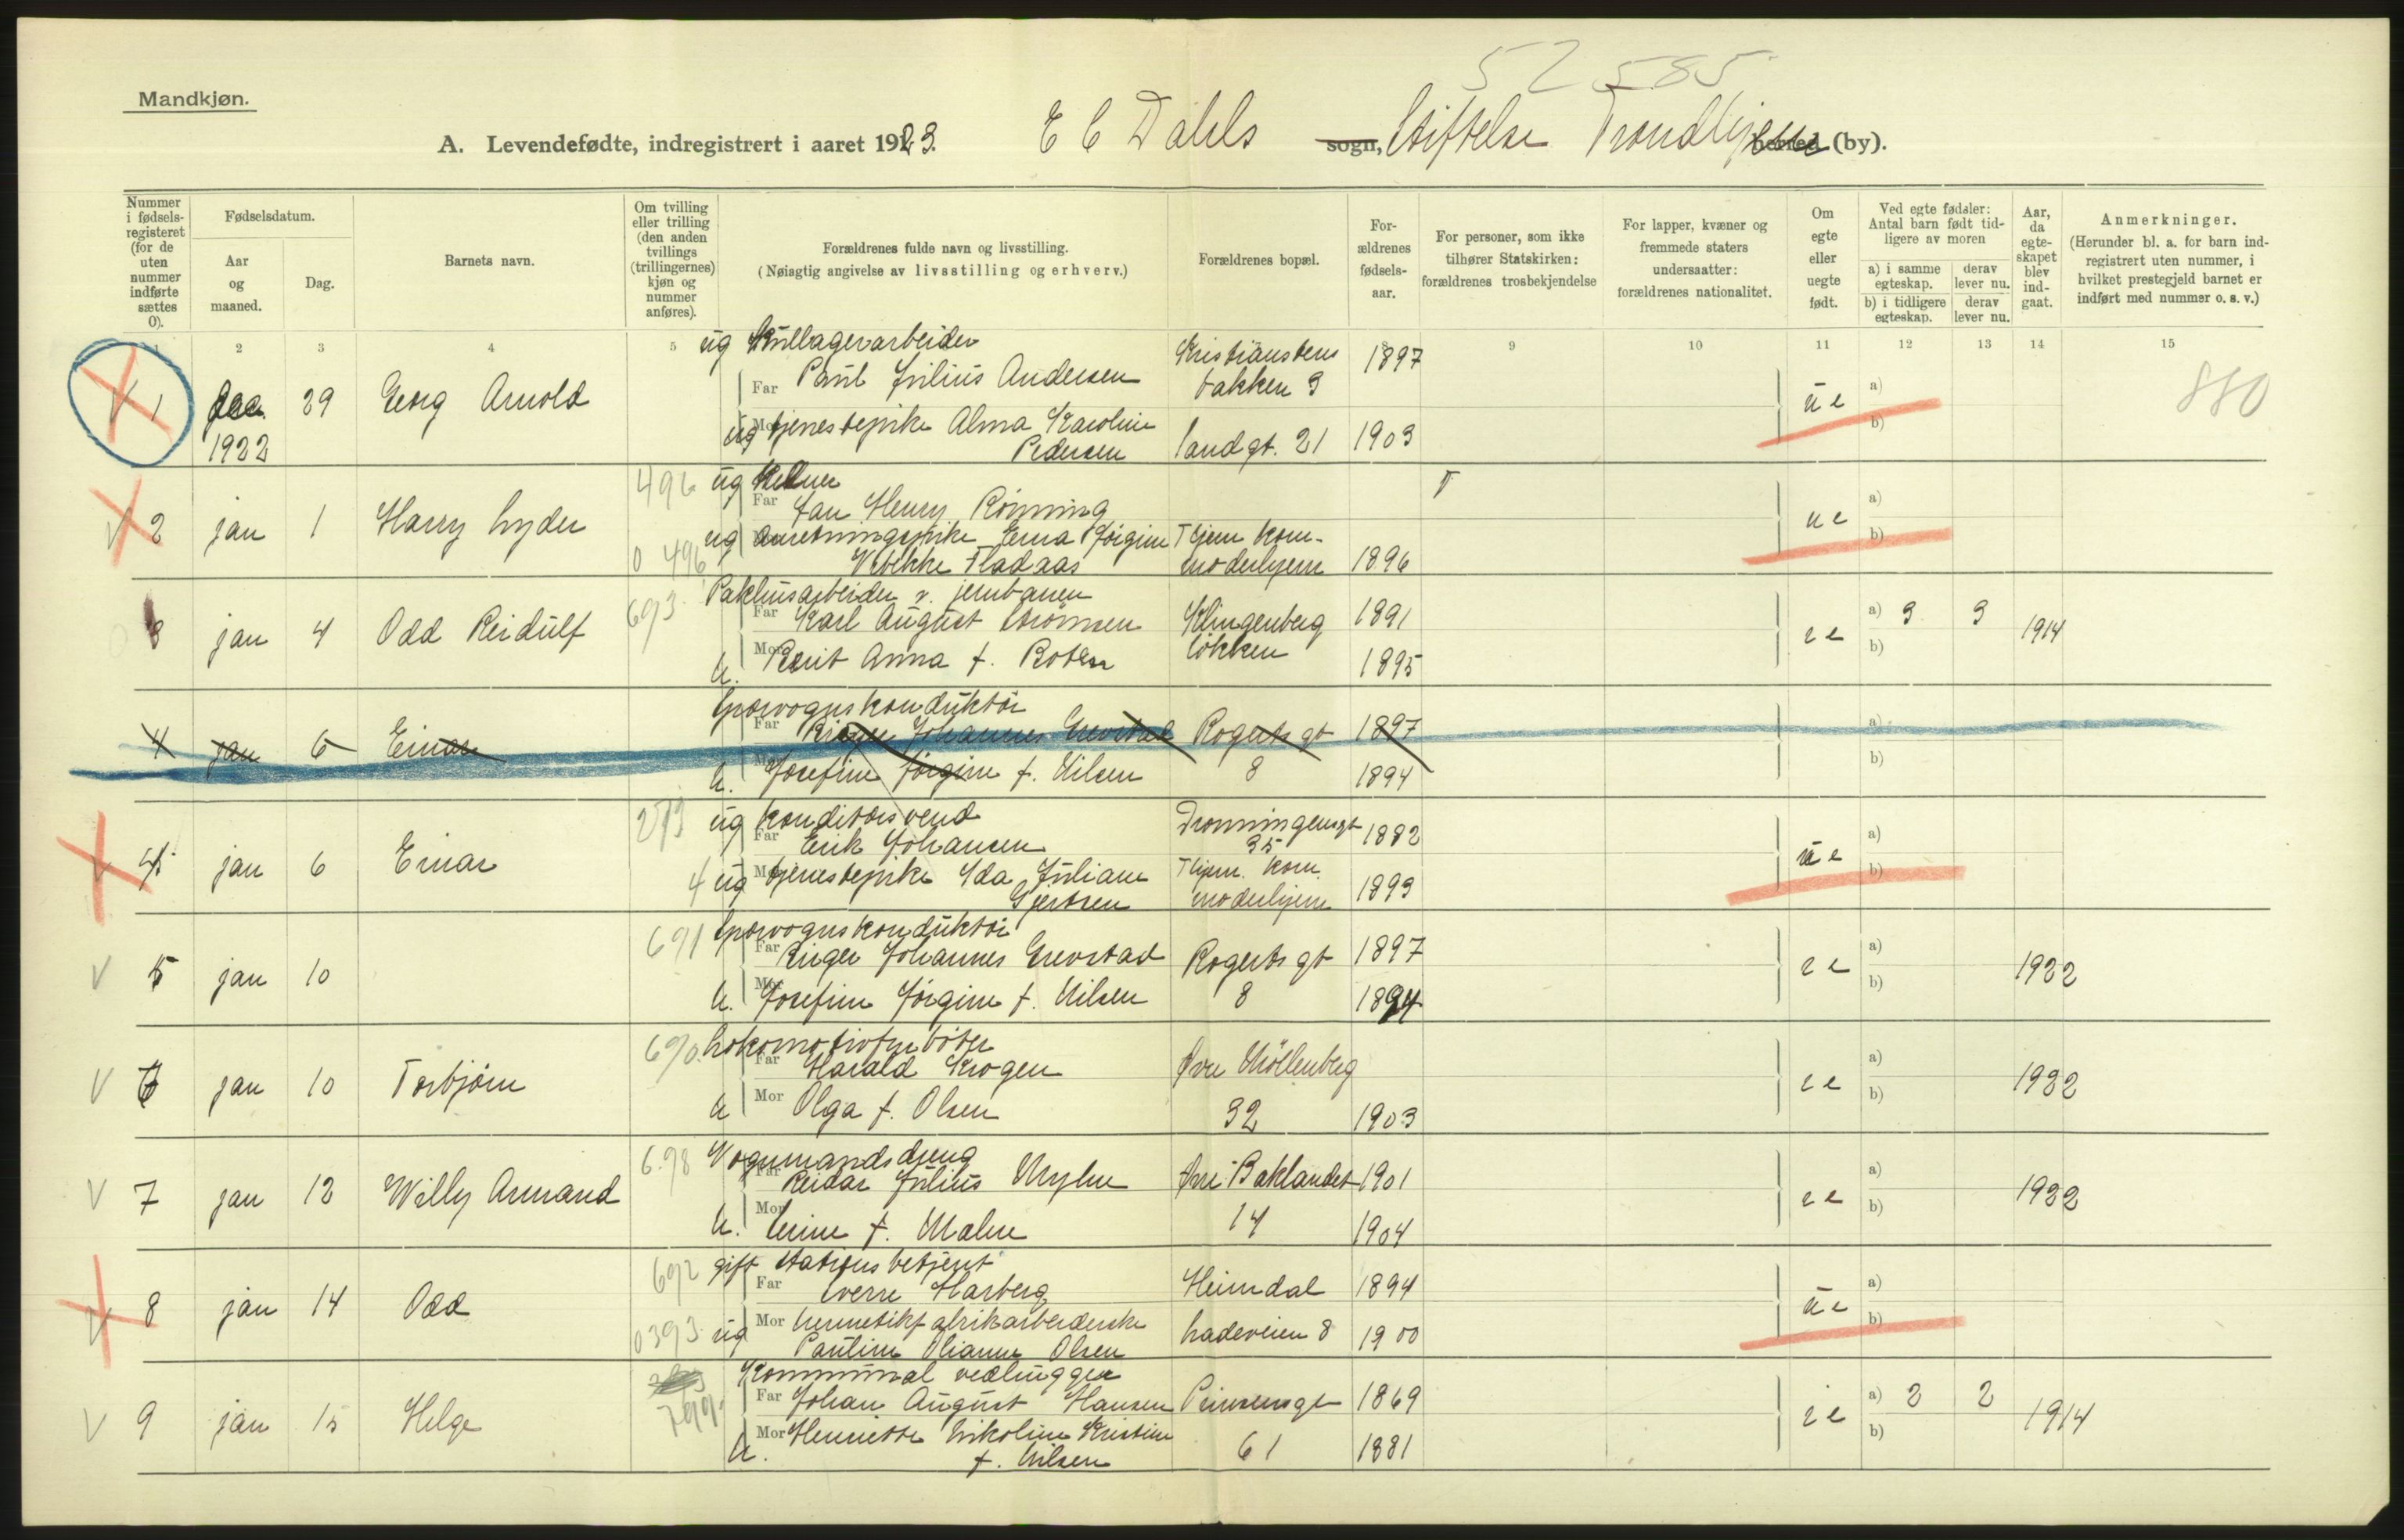 52 585
Mandkjøn.
A. Levendefødte, indregistrert i aaret 1923. E C Dahls sogn, Stiftelse Trondhjem herred (by).
Nummer i fødsels-registeret (for de uten nummer indførte sættes 0).
Fødselsdatum.
Aar og maaned.
Dag.
Barnets navn.
Om tvilling eller trilling (den anden tvillings (trillingernes) kjøn og nummer anføres).
Forældrenes fulde navn og livsstilling.
(Nøiagtig angivelse av livsstilling og erhverv.)
Forældrenes bopæl.
For-ældrenes fødsels-aar.
For personer, som ikke tilhører Statskirken: forældrenes trosbekjendelse
For lapper, kvæner og fremmede staters undersaatter: forældrenes nationalitet.
Om egte eller uegte født.
Ved egte fødsler: Antal barn født tid-ligere av moren
a) i samme egteskap. derav lever nu.
b) i tidligere egteskap. derav lever nu.
Aar, da egte-skapet blev ind-gaat.
Anmerkninger.
(Herunder bl. a. for barn ind-registrert uten nummer, i hvilket prestegjeld barnet er indført med nummer o. s. v.)
1 2 3 4 5 8 9 10 11 12 13 14 15
ug Kullagerarbeider
V 1 dec. 29 Georg Arnold Far Paul Julius Andersen Kristianstens bakken 3 1897 ue a) 880
1922 ug Mor tjenestepike Alma Karoline Pedersen Sandgt. 21 1903 b)
496 ug Kelner
V 2 jan 1 Harry Lyder Far Jan Henry Rønning ue a)
0 496 ug anretningspike Erna Jörgine Vibekke Fladaas Thjem kom. moderhjem 1896 b)
693 Pakhusarbeider v. jernbanen
3 jan 4 Odd Reidulf Far Karl August Strömsen Klingenberg løkken 1891 ee a) 3 3 1914
h. Mor Berit Anna f. Roten 1895 b)
Sporvognskonduktör
4 jan 6 Einar Far Birger Johannes Grevstad Rogerts gt 1897 a)
h. Mor Josefine Jörgine f. Nilsen 8 1894 b)
273 ug Konditorsvend
V 4 jan 6 Einar Far Erik Johansen Dronningensgt 35 1882 ue a)
4 ug Mor tjenestepike Ida Juliane Gjertsen Thjem. kom. moderhjem 1893 b)
691 Sporvognskonduktör
V 5 jan 10 Far Birger Johannes Grevstad Rogerts gt 1897 ee a) 1922
h. Mor Josefine Jörgine f. Nilsen 8 1894 b)
690. Lokomotivfyrböter
V 6 jan 10 Torbjörn Far Harald Krogen Övre Möllenberg ee a) 1922
h Mor Olga f. Olsen 32 1903 b)
698 Vognmandsdreng
V 7 jan 12 Willy Armand Far Reidar Julius Myhre Övre Baklandet 1901 ee a) 1922
h. Mor f. Malm 14 1904 b)
692 gift stationsbetjent
V 8 jan 14 Odd Far Sverre Harberg Heimdal 1894 ue a)
0393 ug Mor hermetikfabrikarbeiderske Pauline Olianne Olsen Ladeveien 8 1900 b)
Kommunal vedhugger
V 9 jan 15 Helge 799. Far Johan August Hansen Prinsensgt 1869 ee a) 2 2 1914
h. Mor Henriette Nikoline Kristine f. Nilsen 61 1881 b)